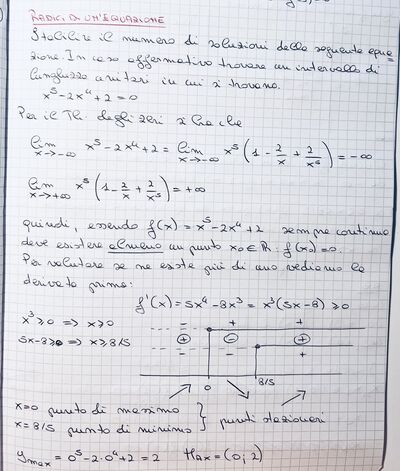 RADICI DI UN'EQUAZIONE
Stabilire il numero di soluzioni della seguente equa
zione. In caso affermativo trovare un intervallo di
lunghezza unitari in cui si trovano.
x⁵-2x⁴+2=0
Per il Th. degli zeri si ha che
lim x→-∞ x⁵-2x⁴+2 = lim x→-∞ x⁵(1-2/x+2/x⁵) = -∞
lim x→+∞ x⁵(1-2/x+2/x⁵) = +∞
quindi, essendo f(x)=x⁵-2x⁴+2 sempre continua
deve esistere almeno un punto x₀∈ℝ: f(x₀)=0.
Per valutare se ne esiste più di uno vediamo la
derivata prima:
f'(x)=5x⁴-8x³=x³(5x-8)≥0
x³≥0 => x≥0
5x-8≥0 => x≥8/5
- + +
+ - +
0 8/5
x=0 punto di massimo
x=8/5 punto di minimo } punti stazionari
y max = 0⁵-2·0⁴+2=2 Max=(0;2)